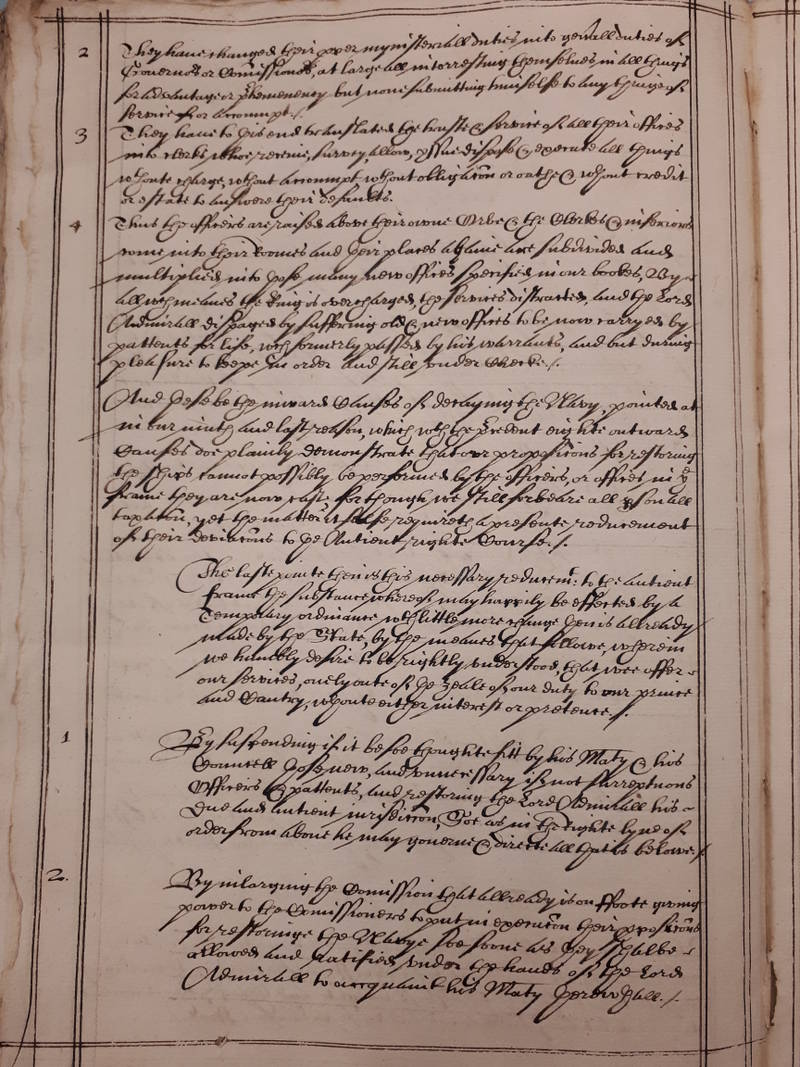 2 They haue changed their over mynisteriall duties into generall duties of
Governors or Comissioners, at large all interressing themselues in all things
for advantage or phemenency but none submitting himselfe to any charge of
service or accompt./.
3 They haue to this end translated the trust & service of all their offices
into clerks, whoe receive, survey, allow, yssue, dispose & execute all things
wthoute charge, wthout accompt wthout obligacon or oathe & wthout credit
or estate to answere their defaults.
4 Thus the officers are raised aboue their owne Orbe & the Clerkes & inferiors
come into their roomes and their places againe are subdivided and
multiplied into those many new offices specified in our bookes, By
all wch meanes the King is overcharged, the services distracted, and the Lord
Admirall disparaged by suffering old & new offices to be now carryed by
pattents for life, wch formerly passed by his warrants, and but during
pleasure to keepe in order and still under Checke./.
And these be the inward Causes of decaying the Navy, pointed at
in our ninth and last reason, which wth the precedent eighte outward
Causes doe plainly demonstrate that our propositions for restoring
the ships cannot possibly be performed by the officers, or offices in ye
frame they are now cast, for though we still forbeare all psonall
taxacon, yet the matter it selfe requireth a presente reducement
of their deviacons to the Antient righte Course./.
The laste pointe then is this necessary reducemt: to the antient
frame the substance whereof may happily be effected by a
Temporary ordinance wth little more change then is allready
made by the State, by the meanes that followe, wherein
we humbly desire to be rightly understood, that wee offer
our services, onely oute of the zeale of our duty to our prince
and Cuntry, wthoute either interest or pretence./.
1 By suspending if it be soe thoughte fitt by his Maty & his
Councell those new, and unnecessary if not surreptious
Officers & pattents, and restoring the Lord Admirall his
Due and antient jurisdiccon, Soe as in the righte lyne of
order from aboue he may governe & directe all that is belowe./.
2. By inlarging the Comission that allready is on foote giving
power to the Comissioners to put in execucon their proposicons
for restoringe the Navye soe soone as they shalbe
allowed and ratified under the hands of the Lord
Admirall to acquaint his Maty therewthall./.